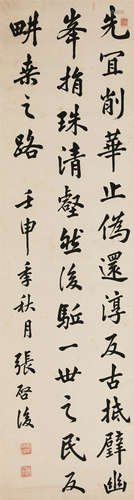 先宜削華止偽還淳反古抵璧幽
峯捐珠清壑然後駈一世之民反
畊桒之路 壬申季秋月 張啓後